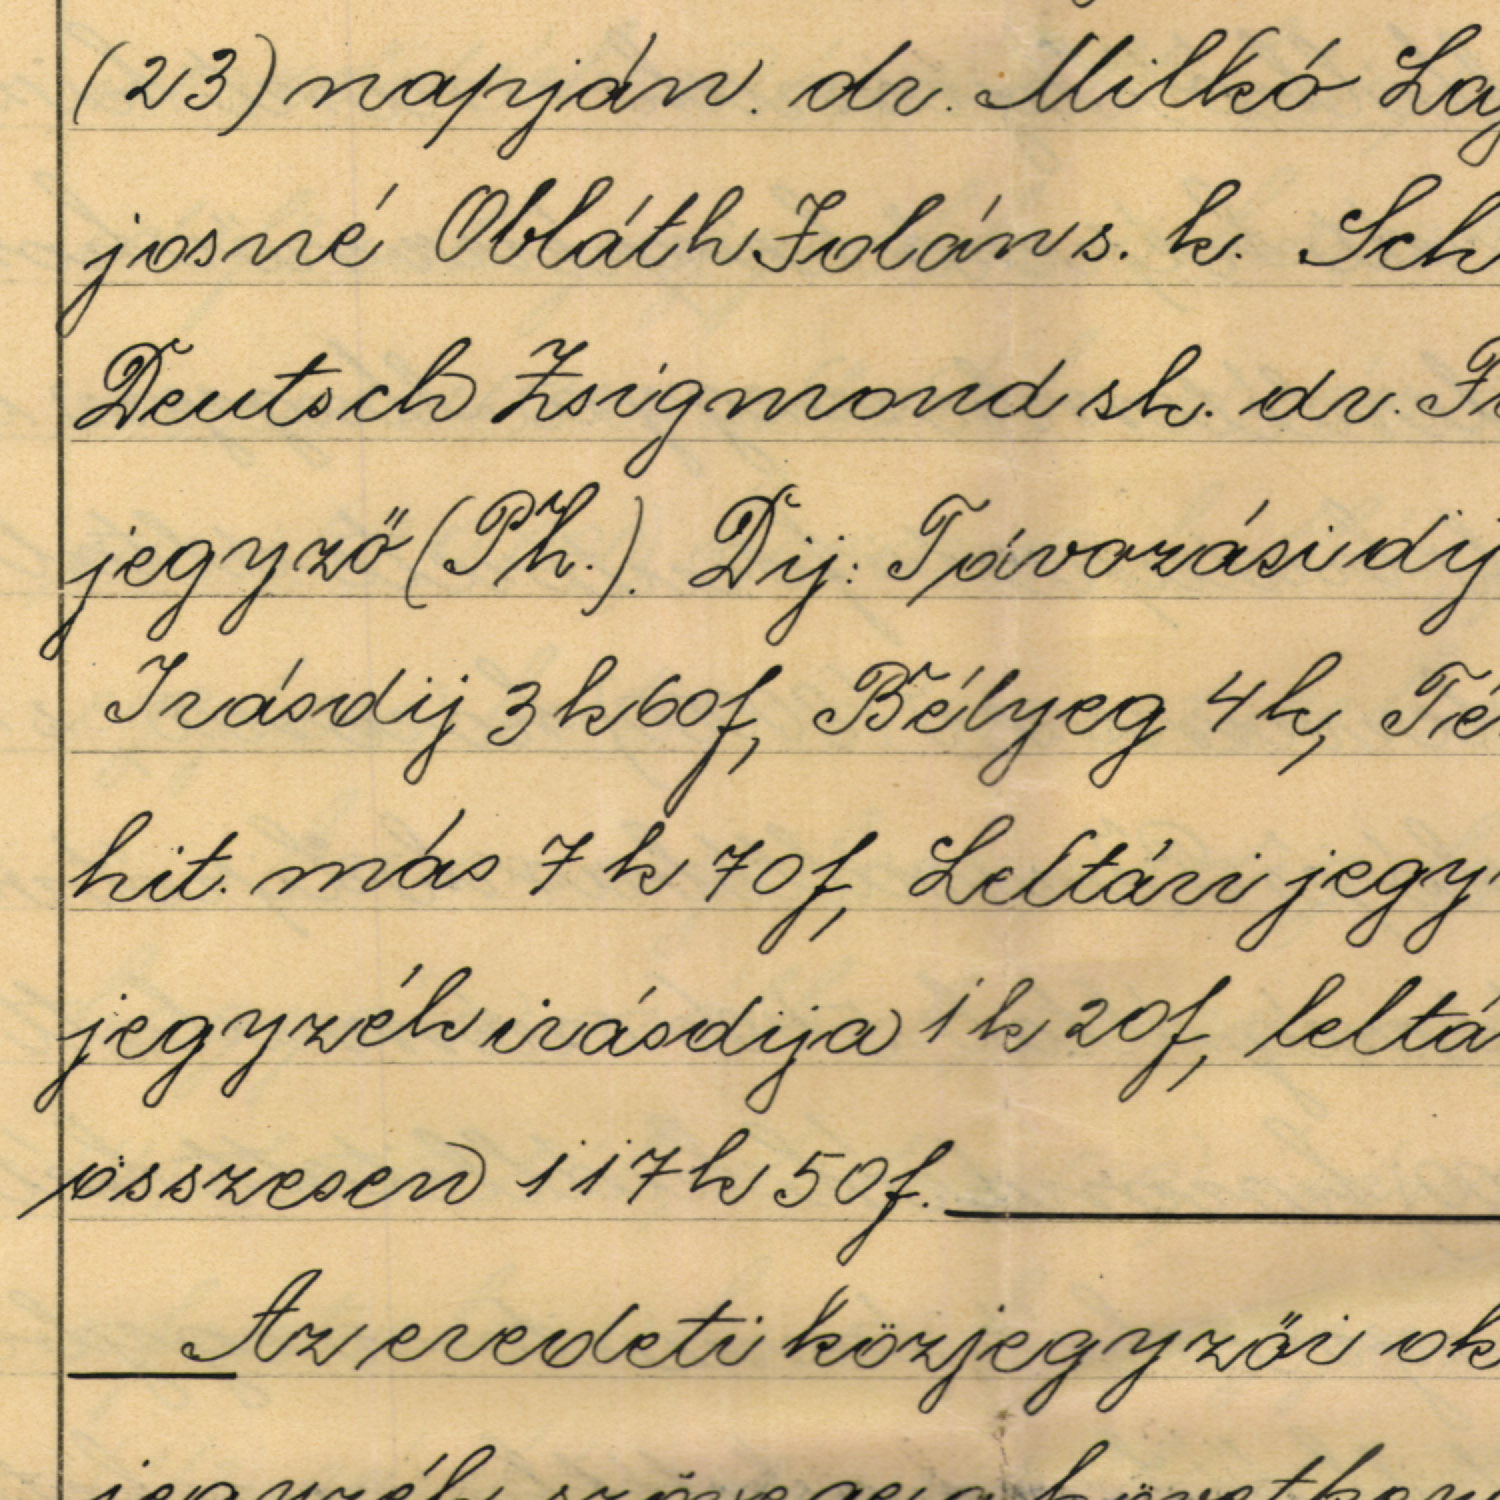 (23) napján. dr. Milkó Laj
josné Obláth Jolán s. k. Sch
Deutsch Zsigmond sk. dr. F
jegyző (Ph.). Dij: Távozási dij
Irásdij 3 k 60 f, Bélyeg 4 k, Té
hit. más 7 k 70 f, Leltári jegy
jegyzék irásdija 1 k 20 f, leltá
összesen 117 k 50 f.
Az eredeti közjegyzői ok
jegyzék szövege a következ